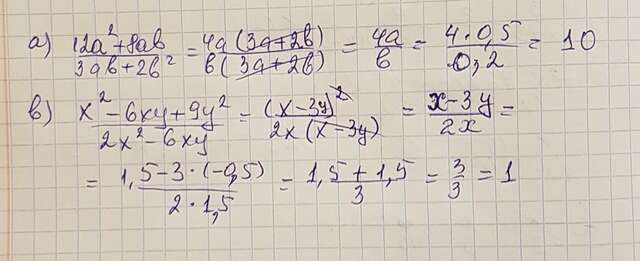 а) 12a²+8ab / 3ab+2b² = 4a(3a+2b) / b(3a+2b) = 4a / b = 4·0,5 / 0,2 = 10
в) x²-6xy+9y² / 2x²-6xy = (x-3y)² / 2x(x-3y) = x-3y / 2x =
= 1,5-3·(-0,5) / 2·1,5 = 1,5+1,5 / 3 = 3/3 = 1